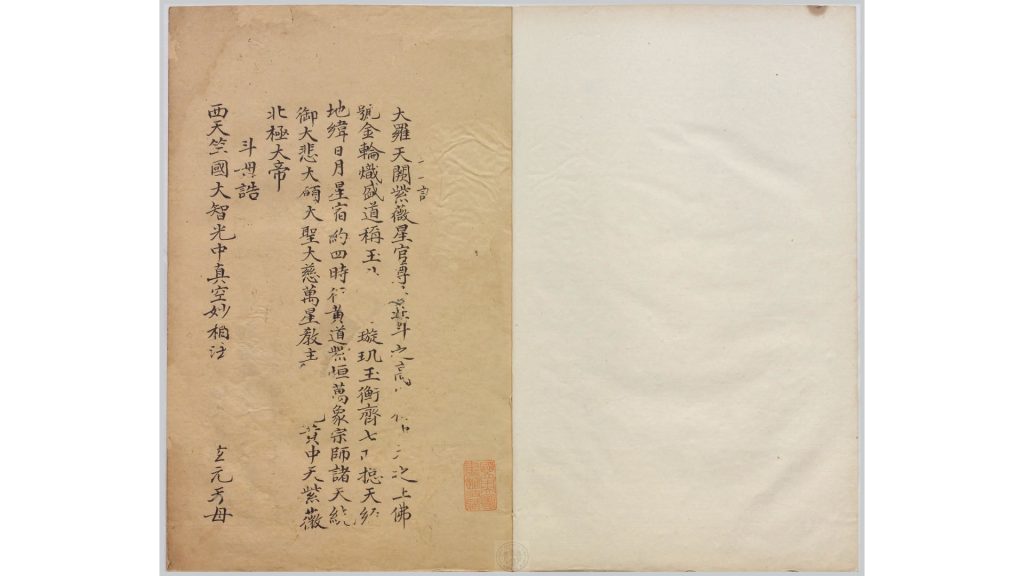 大羅天闕紫薇星官尊北斗之高之上佛
號金輪熾盛道稱玉璇玑玉衡齊七摠天經
地緯日月星宿約四時行黃道紫恒萬象宗師諸天統
御大悲大願大聖大慈萬星教主其中天紫薇
北極大帝
斗母誥
西天竺國大智光中真空妙相法元天母